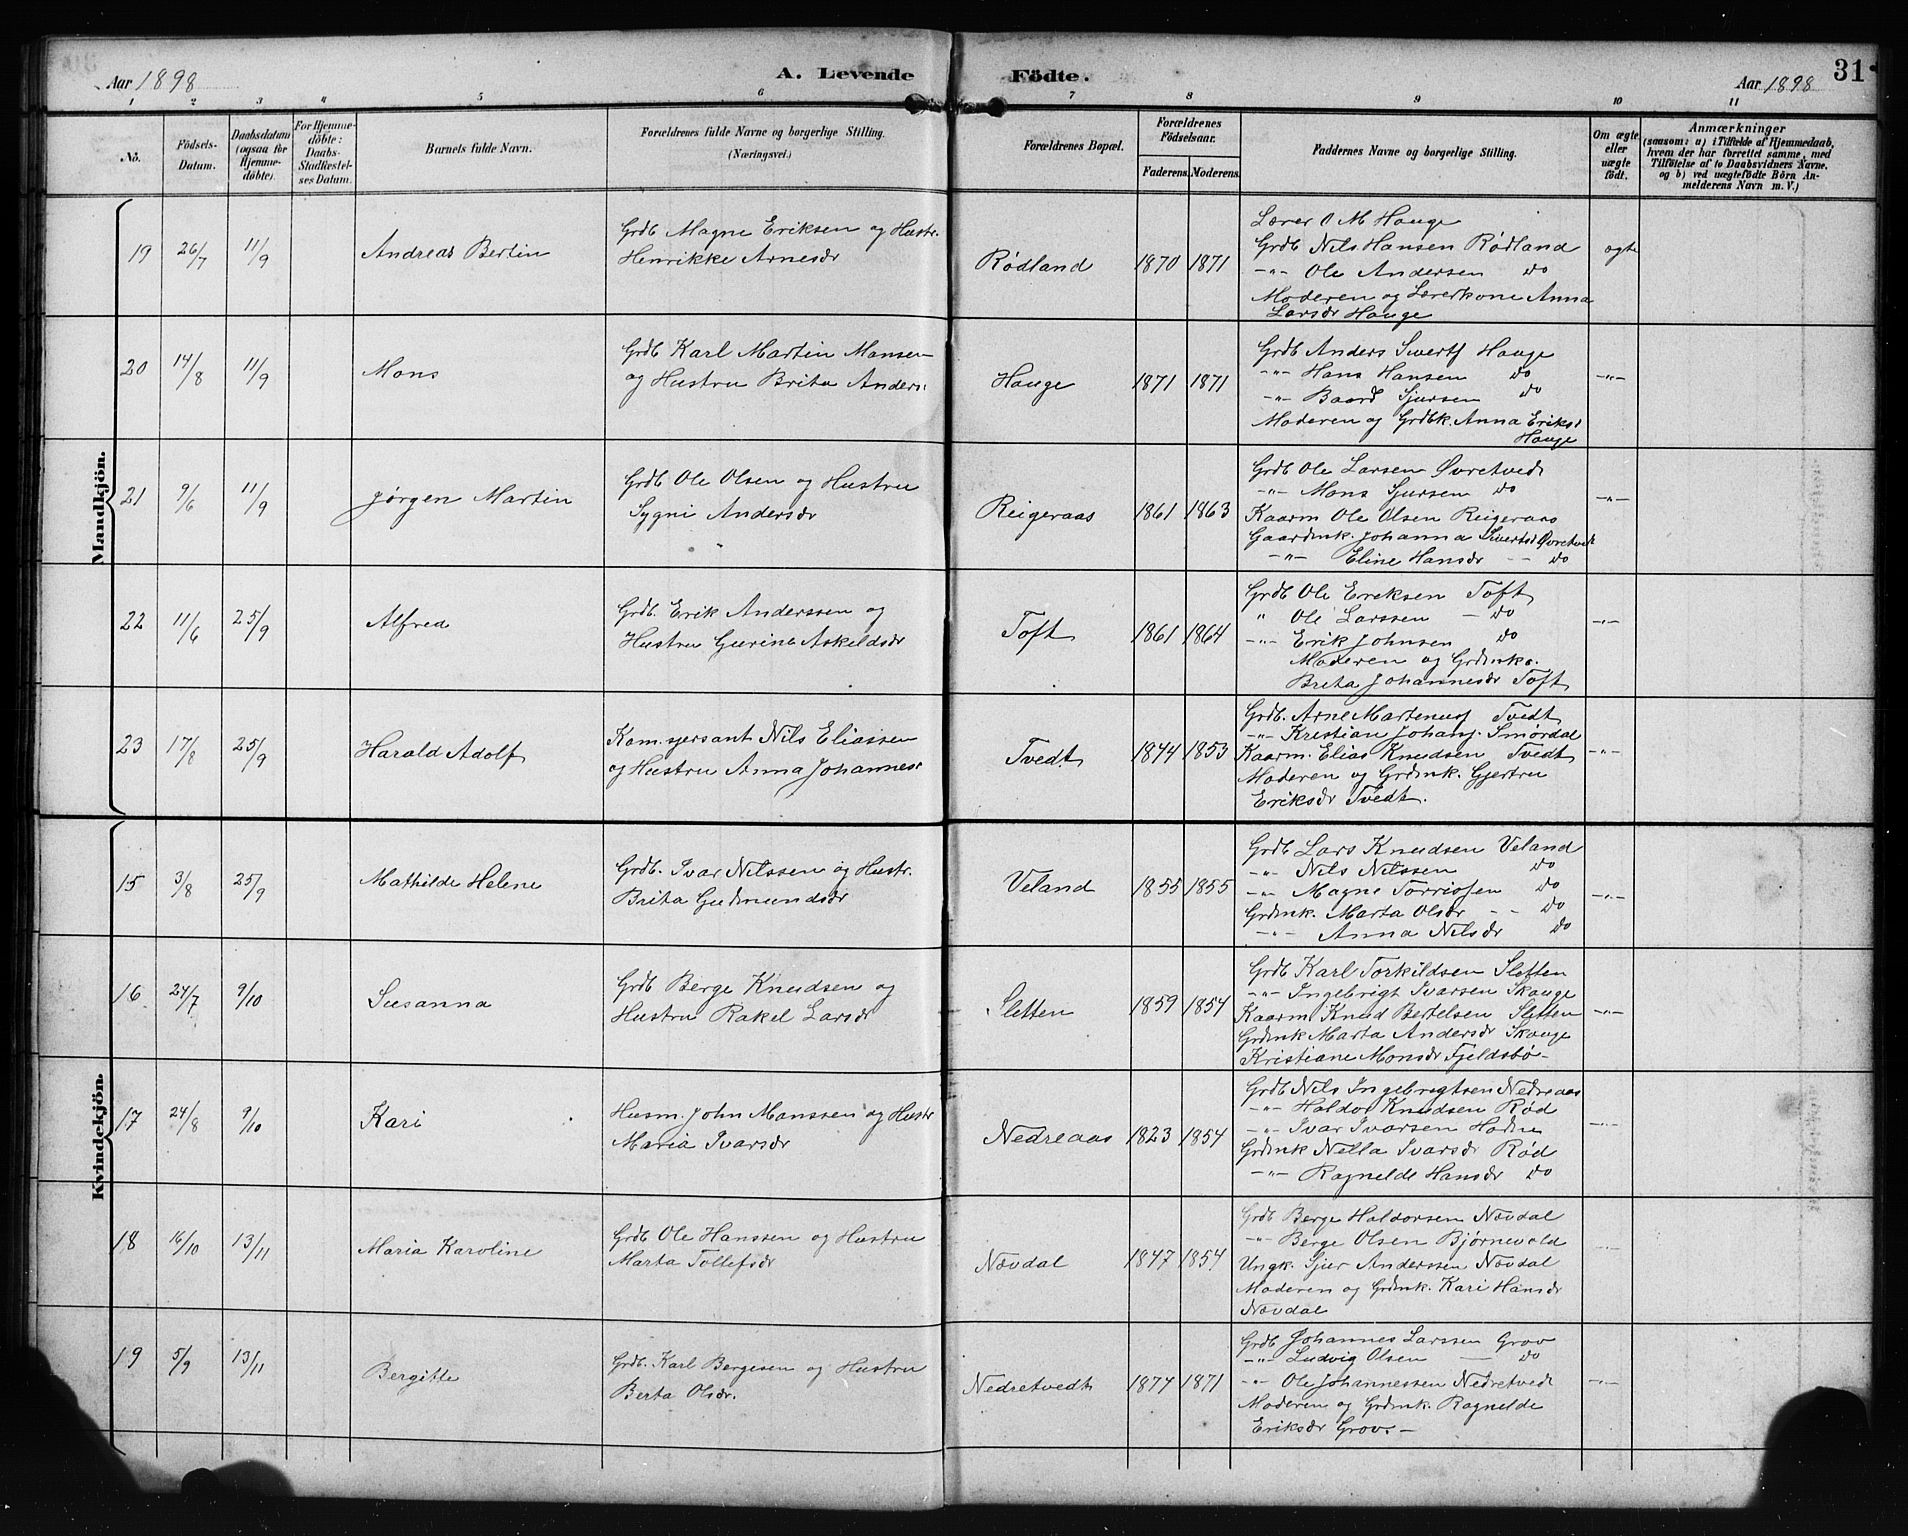 Aar 1898
A. Levende Födte.
31
Aar 1898
1 2 3 4 5 6 7 8 9 10 11
No.
Födsels-Datum.
Daabsdatum (ogsaa for Hjemme-döbte).
For Hjemme-döbte: Daabs-Stadfæstel-ses Datum.
Barnets fulde Navn.
Forældrenes fulde Navne og borgerlige Stilling.
(Næringsvei.)
Forældrenes Bopæl.
Forældrenes Födselsaar.
Faderens. Moderens.
Faddernes Navne og borgerlige Stilling.
Om ægte eller uægte födt.
Anmærkninger
(saasom: a) i Tilfælde af Hjemmedaab, hvem der har forrettet samme, med Tilföielse af to Daabsvidners Navne. og b) ved uægtefödte Börn An-melderens Navn m. V.)
Mandkjön.
19 26/7 11/9 Andreas Bertin
Grdb Magne Eriksen og Hustr.
Henrikke Arnesdr
Rødland 1870 1871
Lærer O M Hauge
Grdb Nils Hansen Rødland
-"- Ole Andersen do
Moderen og Lærerkone Anna
Larsdr Hauge
ægte
20 14/8 11/9 Mons
Grdb Karl Martin Monsen
og Hustru Brita Anders:
Hauge 1871 1871
Grdb Anders Sivertf Hauge
-"- Hans Hansen do
-"- Baard Sjursen do
Moderen og Grdbk. Anna Eriksd
Hauge
-"-
21 9/6 11/9 Jørgen Martin
Grdb Ole Olsen og Hustru
Sygni Andersdr
Reigeraas 1861 1863
Grdb Ole Larsen Øvretvedt
-"- Mons Sjursen do
Kaarm Ole Olsen Reigeraas
Gaardmk. Johanna Sivertsd Øvretvedt
-"- Eline Hansdr -- do
-"-
22 11/6 25/9 Alfred
Grdb. Erik Anderssen og
Hustru Gurine Askeldsdr
Toft 1861 1864
Grdb Ole Eriksen Toft
" Ole Larssen - do
-"- Erik Johnsen do
Moderen og Grdmks.
Brita Johannesdr Toft
-"-
23 17/8 25/9 Harald Adolf
Kom.sjersant Nils Eliassen
og Hustru Anna Johannesd
Tvedt 1844 1853
Grdb. Arne Martenusf Tvedt
-"- Kristian Johan. Smørdal
Kaarm. Elias Knudsen Tvedt
Moderen og Grdmk. Gjertru
Eriksdr Tvedt.
-"-
Kvindekjön.
15 3/8 25/9 Mathilde Helene
Grdb. Ivar Nilssen og Hustr.
Brita Gudmundsdr
Veland 1855 1855
Grdb Lars Knudsen Veland
-"- Nils Nilssen do
-"- Magne Torrisen do
Grdmk. Marta Olsdr -- do
-"- Anna Nilsdr do
-"-
16 24/7 9/10 Susanna
Grdb Berge Knudsen og
Hustru Rakel Larsdr
Sletten 1859 1854
Grdb Karl Torkildsen Sletten
-"- Ingebrigt Ivarsen Skauge
Kaarm Knud Bertelsen Sletten
Grdmk Marta Andersdr Skauge
Kristiane Monsdr Fjeldsbø-
-"-
17 24/8 9/10 Kari
Husm. John Manssen og Hustr
Maria Ivarsdr
Nedreaas 1823 1854
Grdb Nils Ingebrigtsen Nedreaas
-"- Haldor Knudsen Rød
-"- Ivar Ivarsen
Grdmk Nella Ivarsdr Rød
-"- Ragnelde Hansdr do
-"-
18 16/10 13/11 Maria Karoline
Grdb Ole Hanssen og Hustru
Marta Tollefsdr
Nævdal 1847 1854
Grdb Berge Haldorsen Nævdal
-"- Berge Olsen Bjørnevold
Ungk. Sjur Anderssen Nævdal
Moderen og Grdmk. Kari Hansdr
Nævdal
-"-
19 5/9 13/11 Bergitte
Grdb. Karl Bergesen og Hustru
Berta Olsdr.
Nedretvedt 1874 1871
Grdb Johannes Larssen Grov
-"- Ludvig Olsen - do
-"- Ole Johannessen Nedretvedt
Moderen og Grdmk. Ragnelde
Eriksdr Grov. -
-"-